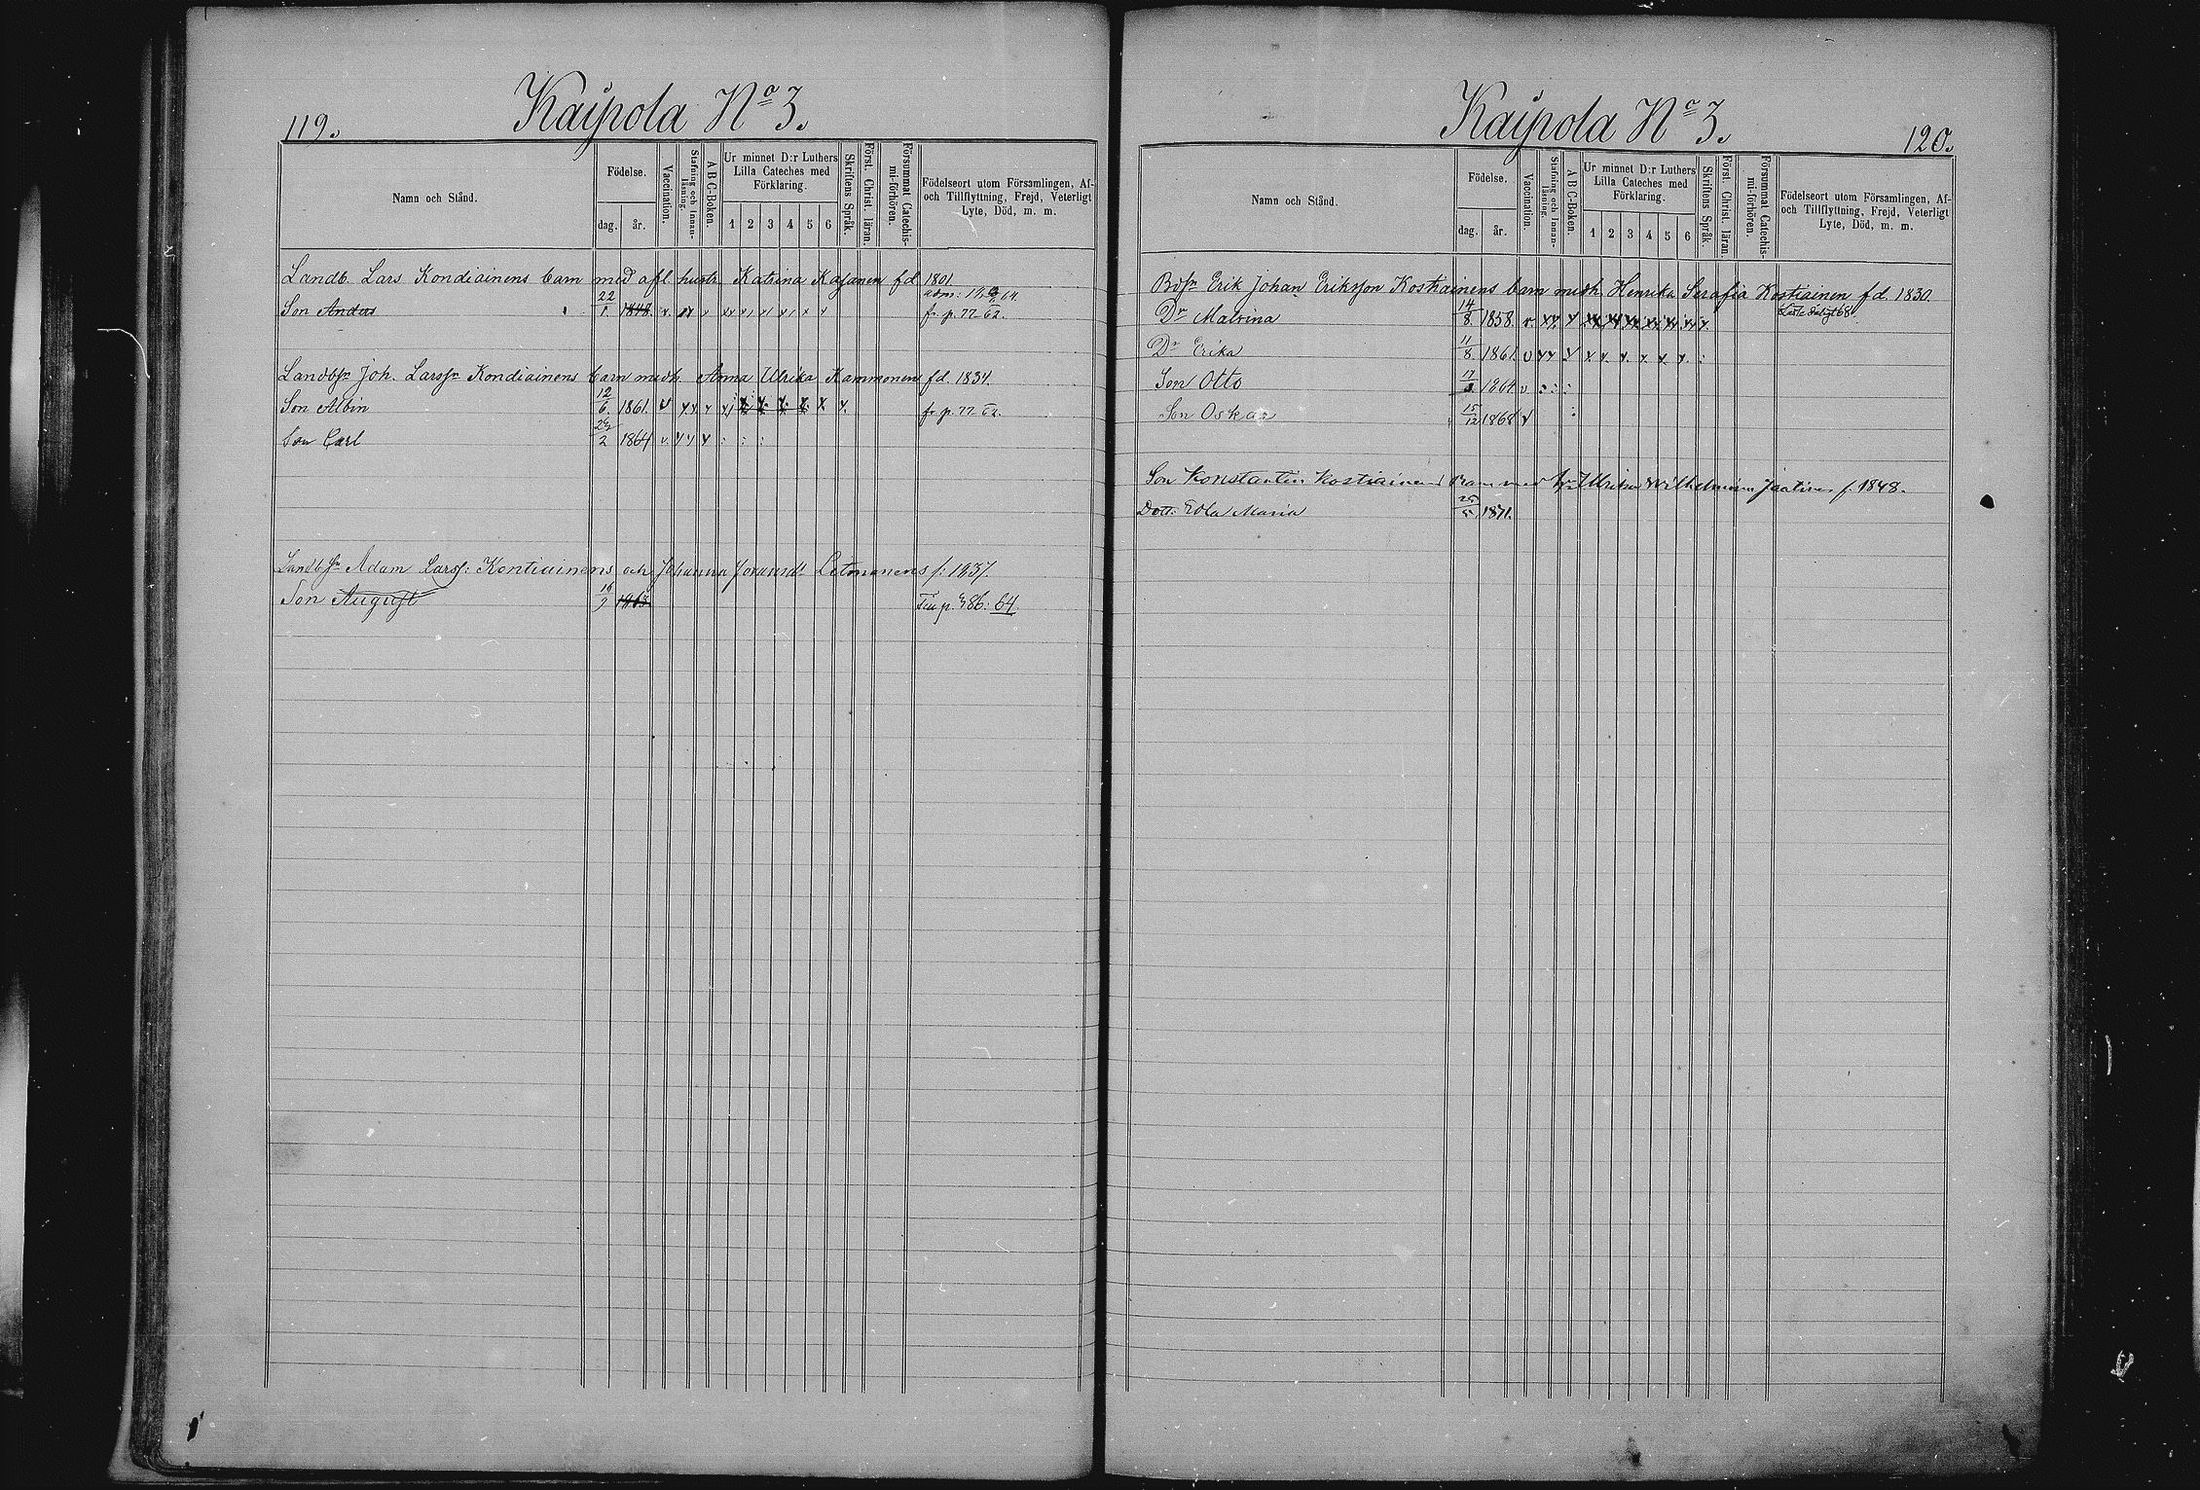 119.
Kaipola No 3.
Namn och Stånd.
Födelse.
dag.
år.
Vaccination.
Stafning och Innan-
läsning.
A B C-Boken.
Ur minnet D:r Luthers
Lilla Cateches med
Förklaring.
1 2 3 4 5 6
Skriftens Språk.
Först. Christ. läran.
Försummat Catechis-
mi-förhören.
Födelseort utom Församlingen, Af-
och Tillflyttning, Frejd, Veterligt
Lyte, Död, m. m.
Landb. Lars Kondiainens barn med afl. hustr. Katrina Kajanen fd 1801
Son Anders 22/1. 1848 fr. p. 77. 62.
Landbsn Joh. Larssn Kondiainens barn medh. Anna Ulrika Kammonen fd. 1834.
Son Albin 12/6. 1861. fr. p. 77. 62.
Son Carl 1864
Landbsn Adam Larss: Kontiainens och Johanna f: 1837.
Son August 1863 p. 386: 64.
Kaipola No 3.
120.
Namn och Stånd.
Födelse.
dag.
år.
Vaccination.
Stafning och Innan-
läsning.
A B C-Boken.
Ur minnet D:r Luthers
Lilla Cateches med
Förklaring.
1 2 3 4 5 6
Skriftens Språk.
Först. Christ. läran.
Försummat Catechis-
mi-förhören.
Födelseort utom Församlingen, Af-
och Tillflyttning, Frejd, Veterligt
Lyte, Död, m. m.
Erik Johan Eriksson Kostiainens barn medh Henrika Serafia Kostiainen fd. 1830.
Dr Malvina 14/8. 1858.
Dr Erika 11/8. 1861.
Son Otto 1864
Son Oskar 15/12 1868
Son Konstantin Kostiainens barn med Ulrika Wilhelmina f. 1848.
Dott: Edla Maria 1871.